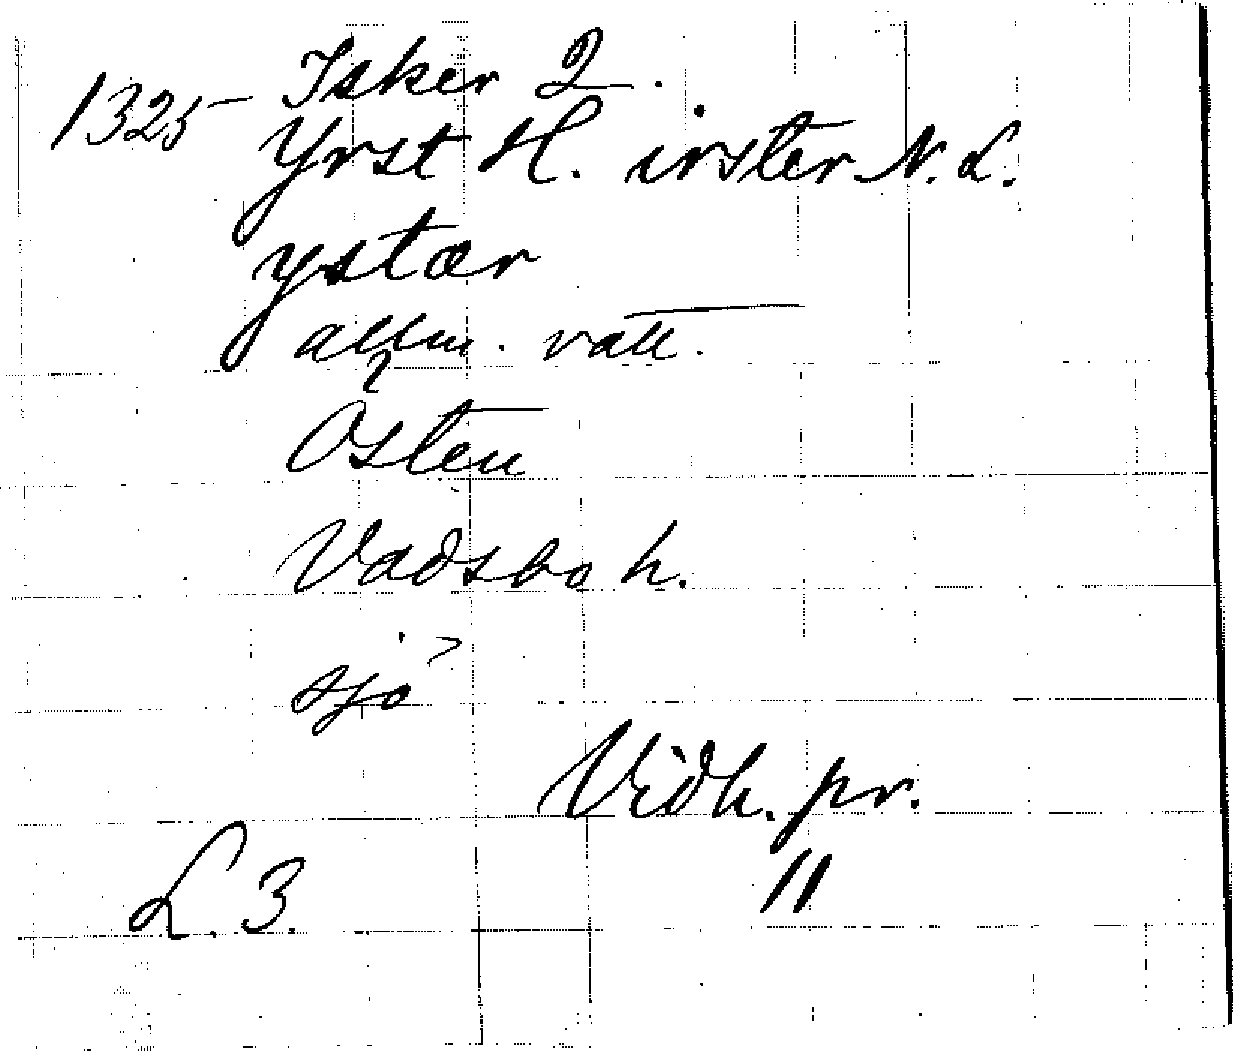 1325 - Isker 2.
Yrst H. irster N. L.
ystær
allm. vatt.
Östen
Vadsbo h.
sjö
Vidh. pr.
11
L. 3.